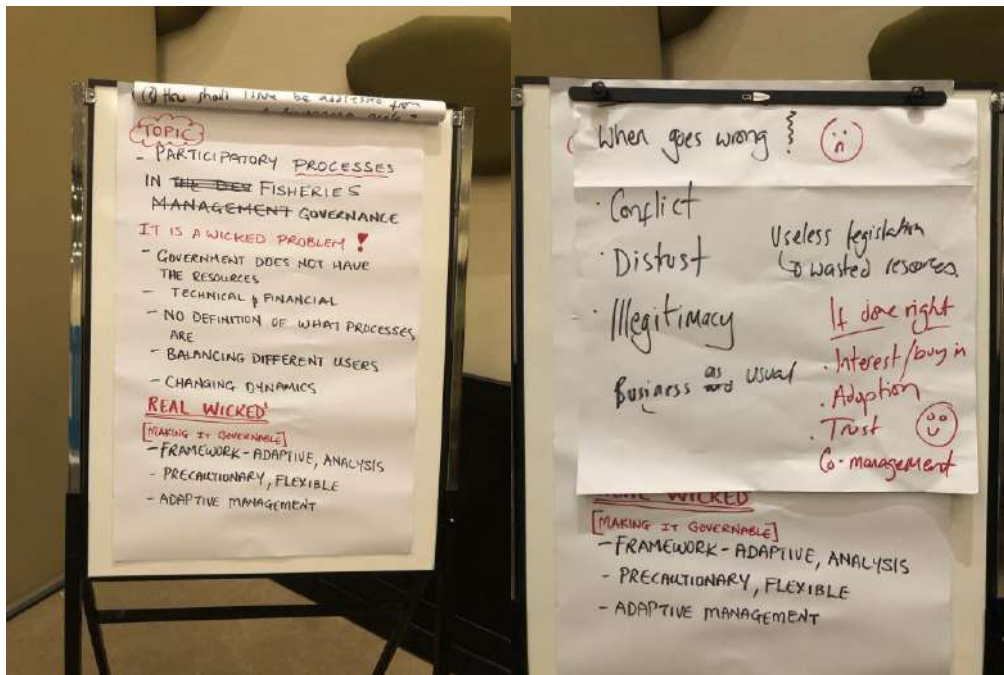 (3) How shall these be addressed from
TOPIC
- PARTICIPATORY PROCESSES
IN THE DEV FISHERIES
MANAGEMENT GOVERNANCE
IT IS A WICKED PROBLEM !
- GOVERNMENT DOES NOT HAVE
THE RESOURCES
- TECHNICAL & FINANCIAL
- NO DEFINITION OF WHAT PROCESSES
ARE
- BALANCING DIFFERENT USERS
- CHANGING DYNAMICS
REAL WICKED
[MAKING IT GOVERNABLE]
- FRAMEWORK - ADAPTIVE, ANALYSIS
- PRECAUTIONARY, FLEXIBLE
- ADAPTIVE MANAGEMENT
When goes wrong
· Conflict
· Distust
· Illegitimacy
Business as usual
Useless legistation
↳ wasted resources.
If done right
· Interest/buy in
· Adoption
· Trust
Co-management
REAL WICKED
[MAKING IT GOVERNABLE]
- FRAMEWORK - ADAPTIVE, ANALYSIS
- PRECAUTIONARY, FLEXIBLE
- ADAPTIVE MANAGEMENT